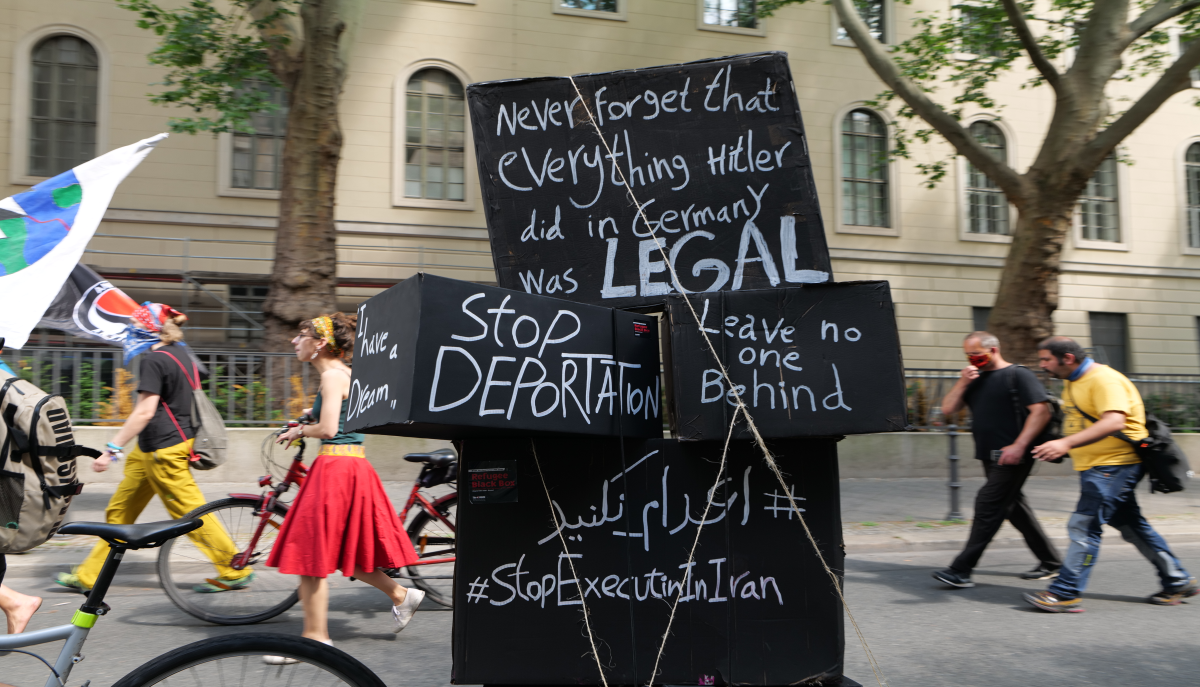 Never forget that
everything Hitler
did in Germany
was LEGAL
"I
have a
Dream"
Stop
DEPORTATION
Leave no
one
Behind
Refugee
Black Box
#اعدام_نکنید
#StopExecutinInIran